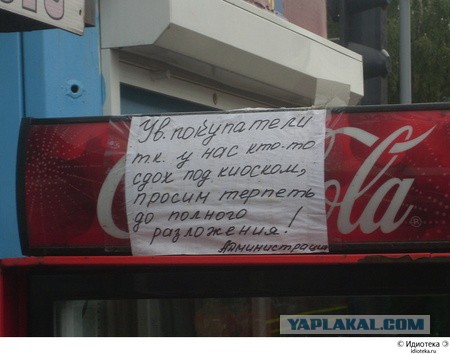 Ув. покупатели
тк. у нас кто-то
сдох под киоском,
просим терпеть
до полного
разложения!
Администрация
Co ola ®
YAPLAKAL.COM
© Идиотека
idioteka.ru